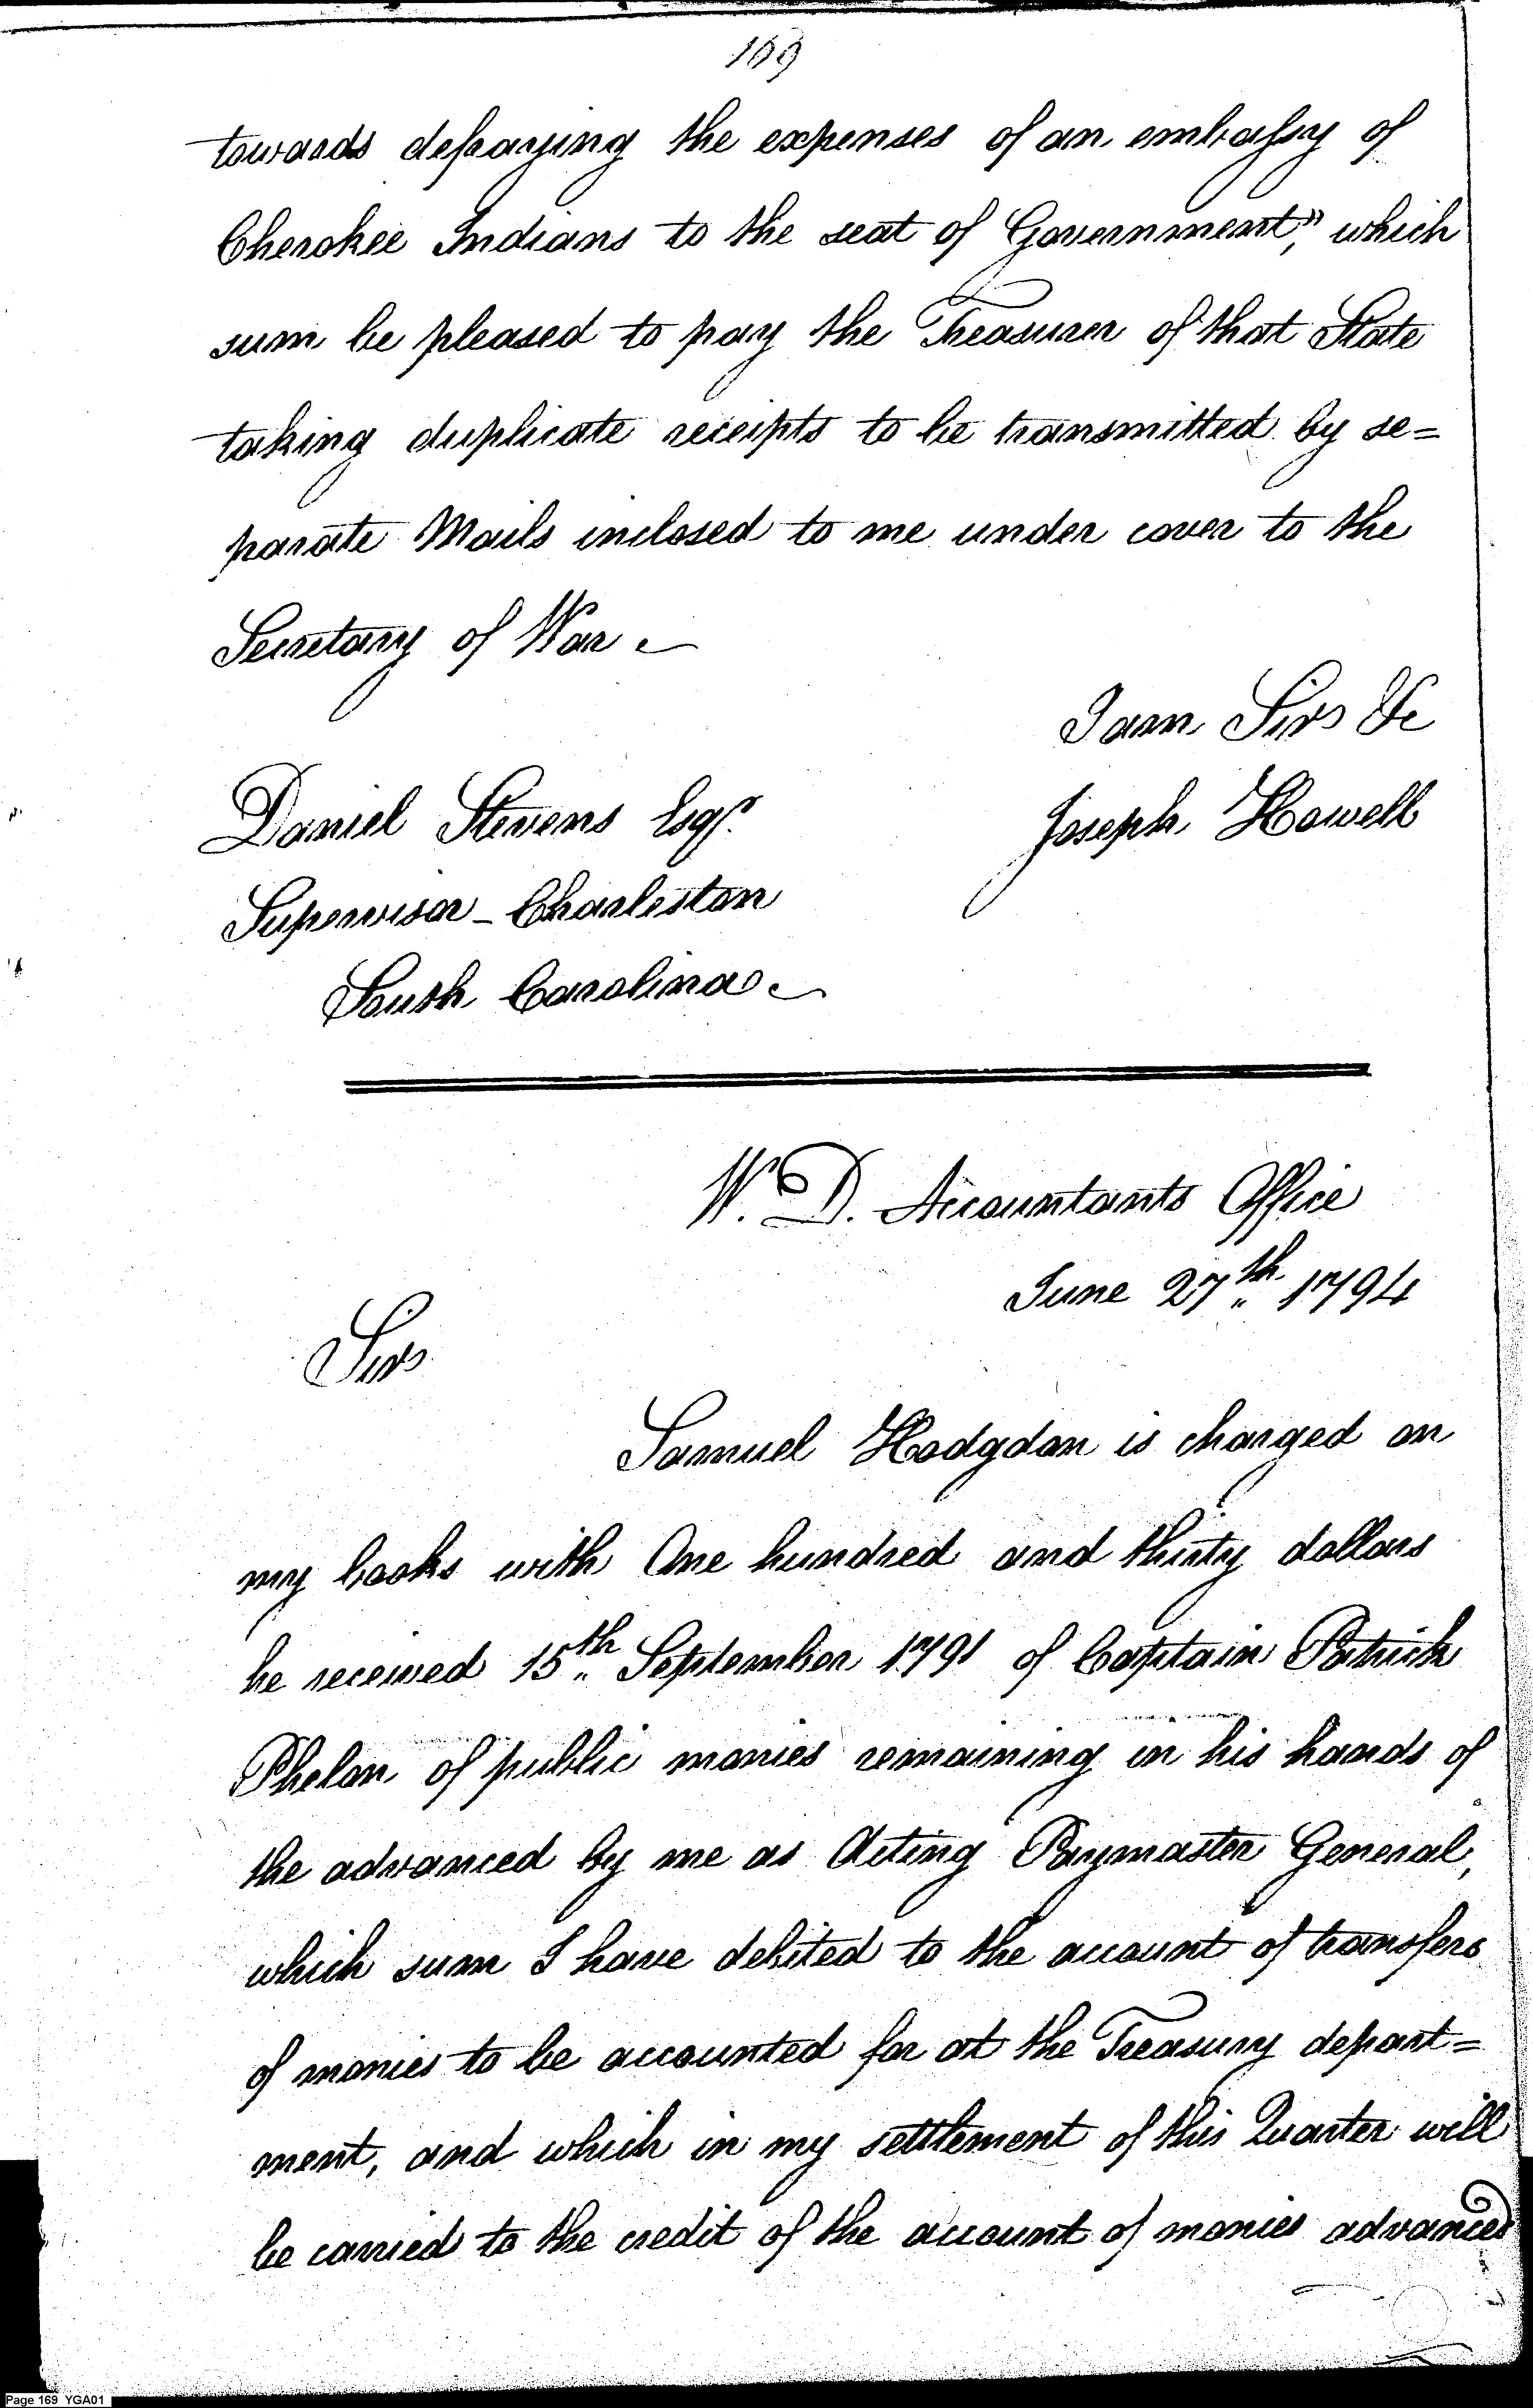 169
towards defraying the expenses of an embassy of
Cherokee Indians to the seat of Government", which
sum be pleased to pay the Treasurer of that State
taking duplicate receipts to be transmitted by se=
parate Mails inclosed to me under cover to the
Secretary of War
I am Sir &c
Daniel Stevens Esqr. Joseph Howell
Supervisor - Charleston
South Carolina
W. D. Accountants Office
June 27th 1794
Sir
Samuel Hodgdon is charged on
my books with One hundred and thirty dollars
he received 15th September 1791 of Captain Patrick
Phelon of public monies remaining in his hands of
the advanced by me as Acting Paymaster General,
which sum I have debited to the account of transfers
of monies to be accounted for at the Treasury depart=
ment, and which in my settlement of this Quarter will
be carried to the credit of the account of monies advanced
Page 169 YGA01